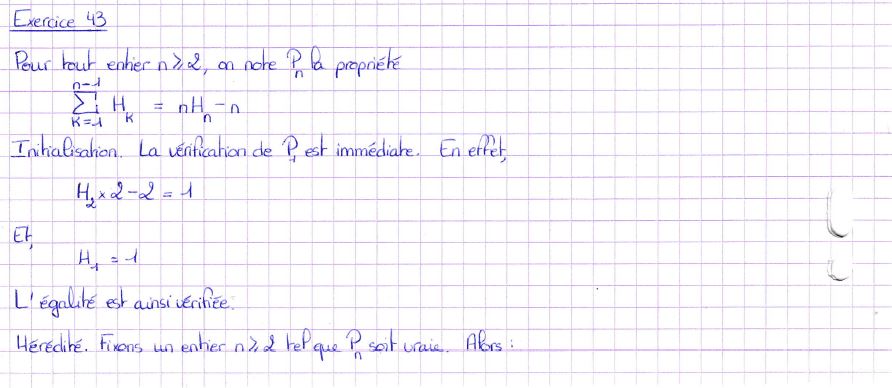 Exercice 43
Pour tout entier n ⩾ 2, on note Pₙ la propriété
n-1
∑ Hₖ = nHₙ - n
K=1
Initialisation. La vérification de P₁ est immédiate. En effet,
H₂ × 2 - 2 = 1
Et,
H₁ = 1
L'égalité est ainsi vérifiée.
Hérédité. Fixons un entier n ⩾ 2 tel que Pₙ soit vraie. Alors :